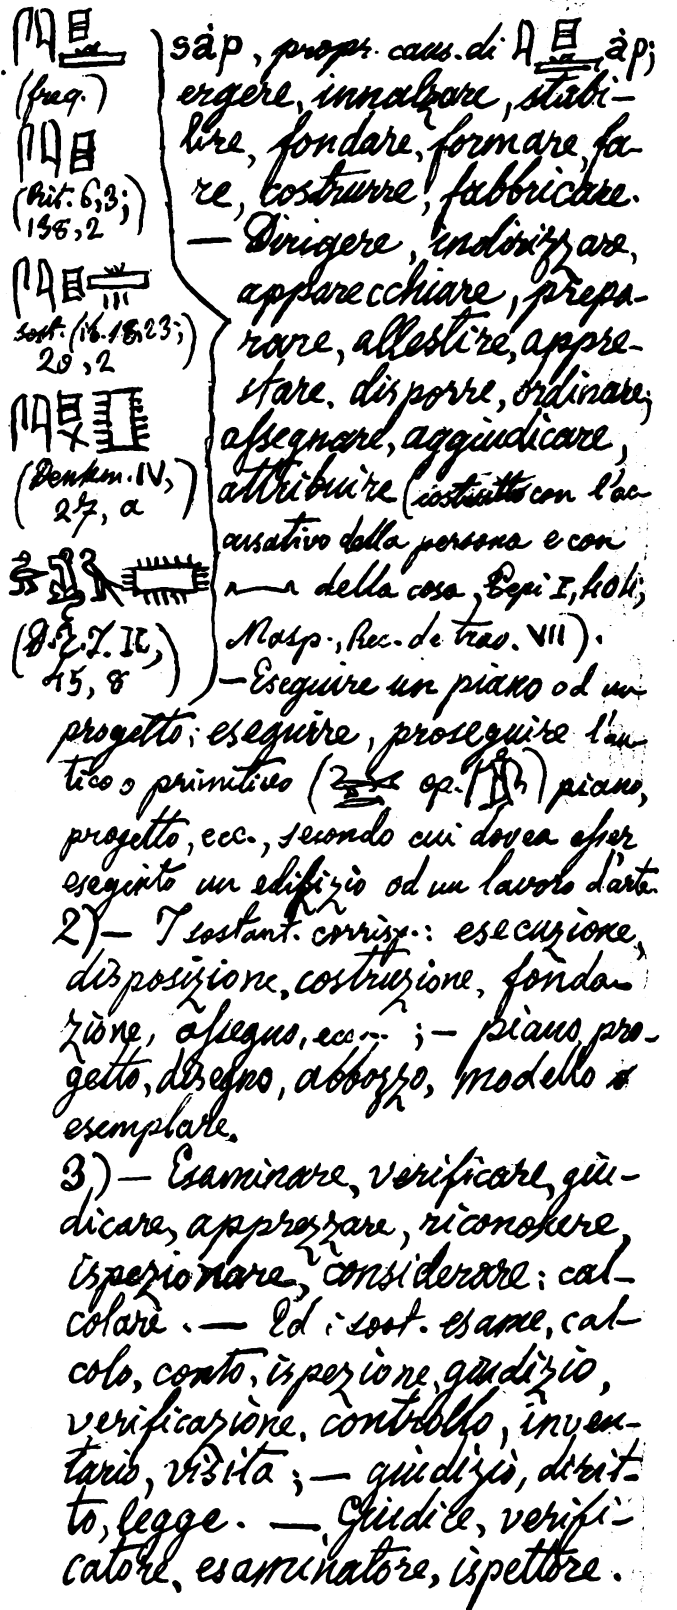 sȧp, propr. caus. di ȧp;
(freq.)
ergere, innalzare, stabi-
lire, fondare, formare, fa-
(Rit. 6,3;
138,2)
re, costrurre, fabbricare.
— Dirigere, indirizzare,
apparecchiare, prepa-
sost. (ib. 18,23;
20,2)
rare, allestire, appre-
stare, disporre, ordinare;
assegnare, aggiudicare,
(Denkm. IV,
27, a)
attribuire (costrutto con l'ac-
cusativo della persona e con
della cosa, Pepi I, 404;
45, 8)
Masp., Rec. de trav. VII).
— Eseguire un piano od un
progetto; eseguire, proseguire l'an-
tico o primitivo ( op. ) piano,
progetto, ecc., secondo cui dovea esser
eseguito un edifizio od un lavoro d'arte.
2) — I sostant. corrisp.: esecuzione,
disposizione, costruzione, fonda-
zione, assegno, ecc... ; — piano, pro-
getto, disegno, abbozzo, modello
esemplare.
3) — Esaminare, verificare, giu-
dicare, apprezzare, riconoscere,
ispezionare, considerare; cal-
colare. — Ed i sost. esame, cal-
colo, conto, ispezione, giudizio,
verificazione, controllo, inven-
tario, visita; — giudizio, dirit-
to, legge. — Giudice, verifi-
catore, esaminatore, ispettore.